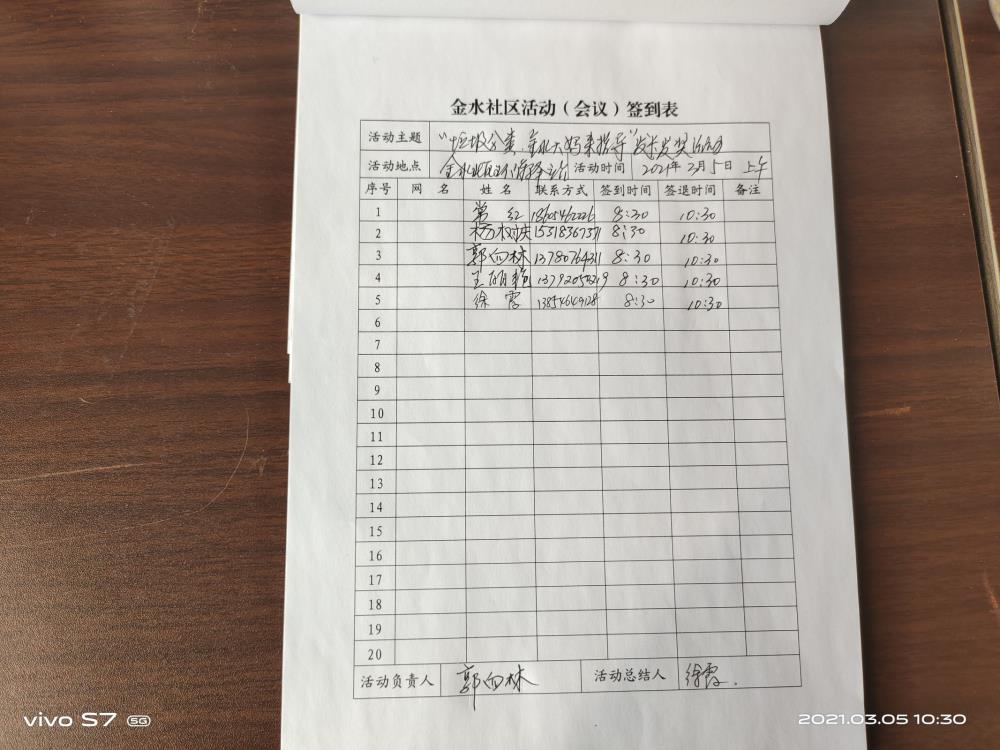 金水社区活动（会议）签到表
活动主题 "垃圾分类,金水大妈来指导"发卡发奖活动
活动地点 活动时间 2021年3月5日 上午
序号 网 名 姓 名 联系方式 签到时间 签退时间 备注
1 常 红 8:30 10:30
2 杨树庆 8:30 10:30
3 郭向林 8:30 10:30
4 8:30 10:30
5 徐霞 8:30 10:30
6
7
8
9
10
11
12
13
14
15
16
17
18
19
20
活动负责人 郭向林 活动总结人 徐霞.
vivo S7 5G
2021.03.05 10:30